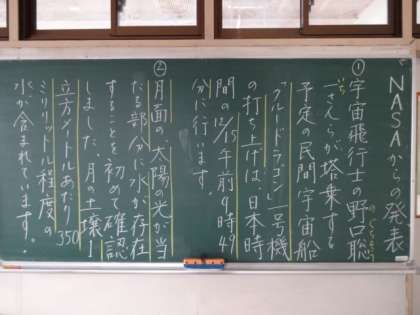 NASAからの発表
① 宇宙飛行士の野口聡
のぐちそう
一さんらが搭乗する
いち
予定の民間宇宙船
「クルードラゴン」一号機
の打ち上げは、日本時
間の12/15午前4時49
分に行います。
② 月面の太陽の光が当
たる部分に水が存在
することを初めて確認
しました。月の土壌1
立方メートルあたり350
ミリリットル程度の
水が含まれています。